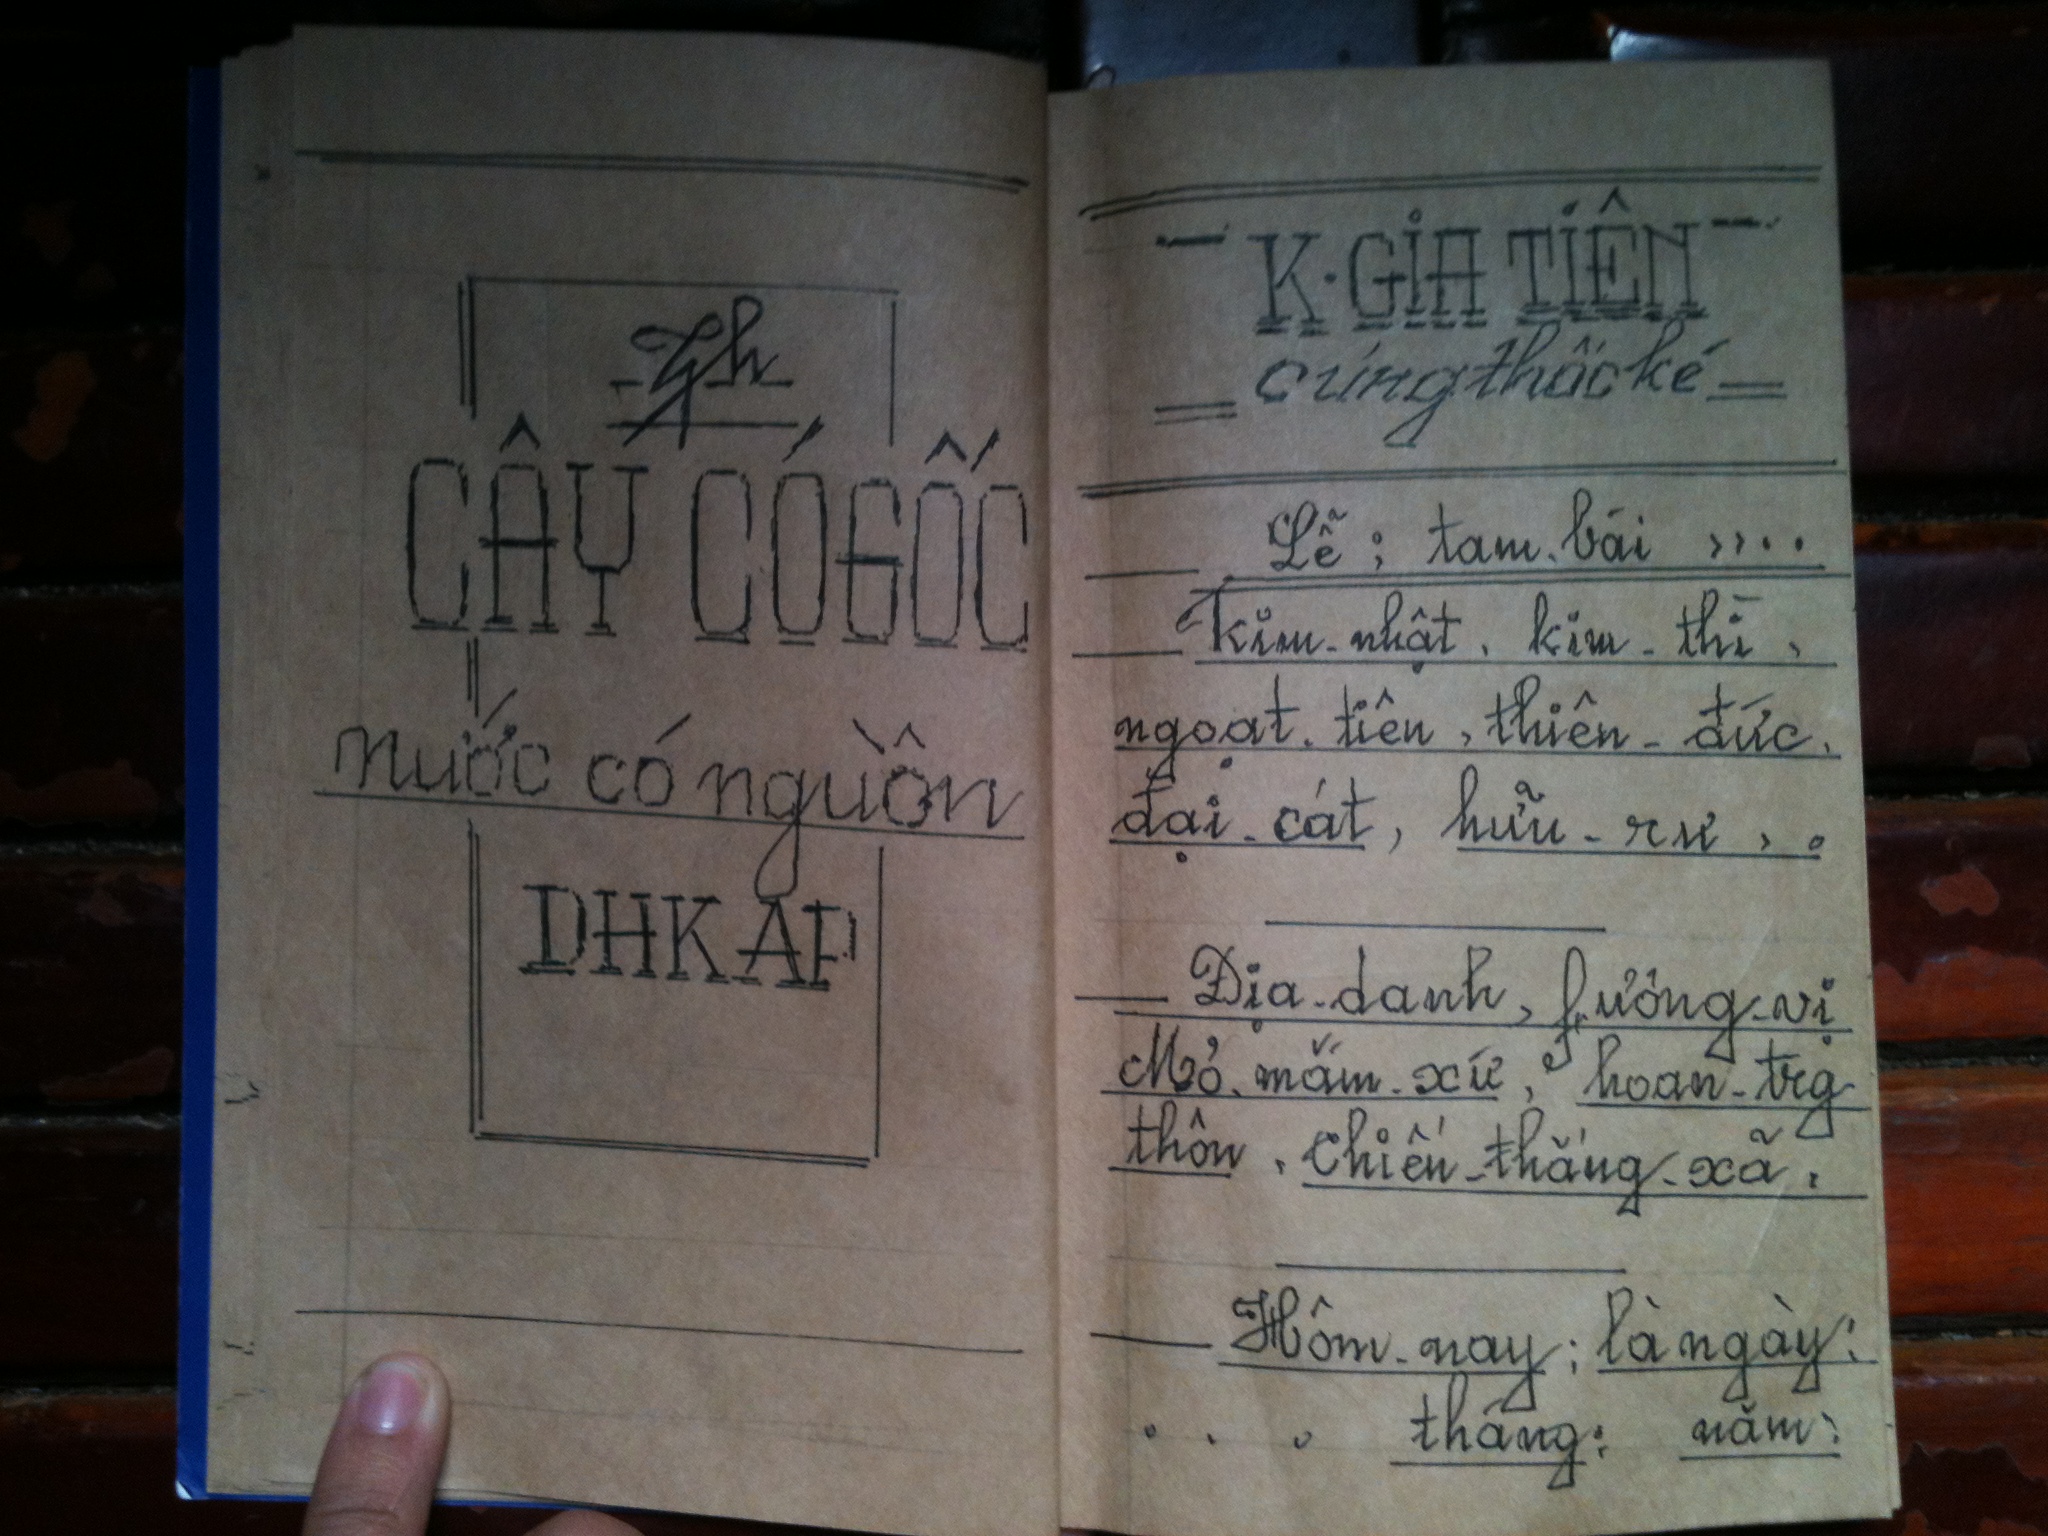 CÂY CÓ GỐC
nước có nguồn
DHKAP
K. GIA TIÊN
cúng thốc ké
Lễ; tam. bái ››..
kim - nhật, kim - thì,
ngoạt. tiên, thiên - đức.
đại - cát, hữu - sư, .
Địa - danh, fương - vị
Mỏ. mắm - xứ, hoan - trg
thôn, chiến - thắng - xã,
Hôm - nay; là ngày:
. . . tháng: năm: